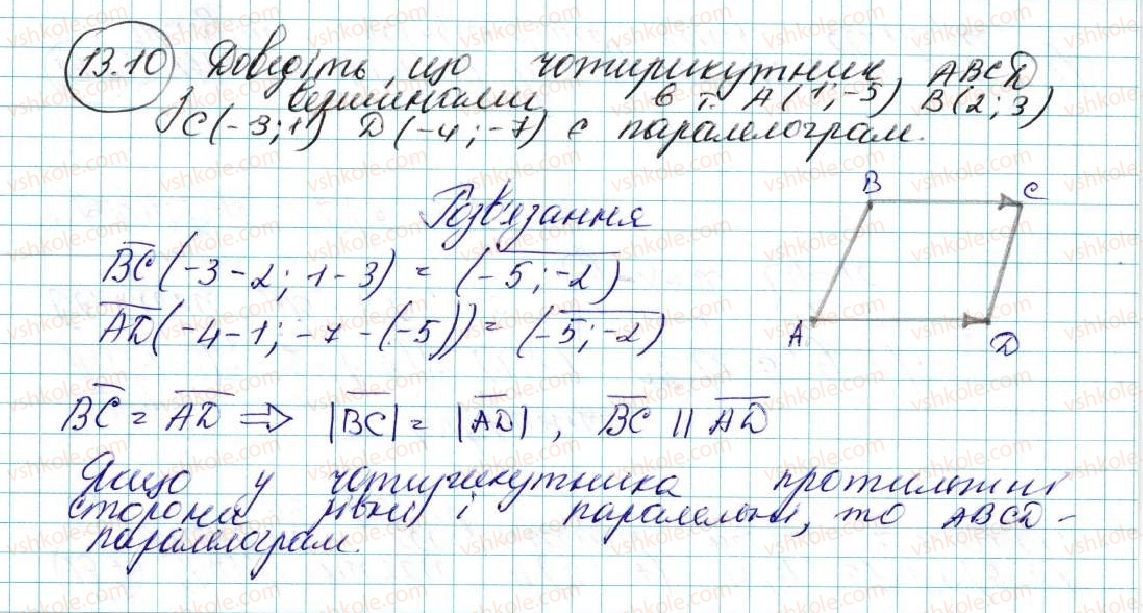 13.10 Доведіть, що чотирикутник ABCD
з вершинами в т. A(1;-5) B(2;3)
C(-3;1) D(-4;-7) є паралелограм.
Розв'язання
B C
A D
BC(-3-2; 1-3) = (-5;-2)
AD(-4-1; -7-(-5)) = (-5;-2)
BC = AD ⇒ |BC| = |AD|, BC || AD
Якщо у чотирикутника протилежні
сторони рівні і паралельні, то ABCD -
паралелограм.